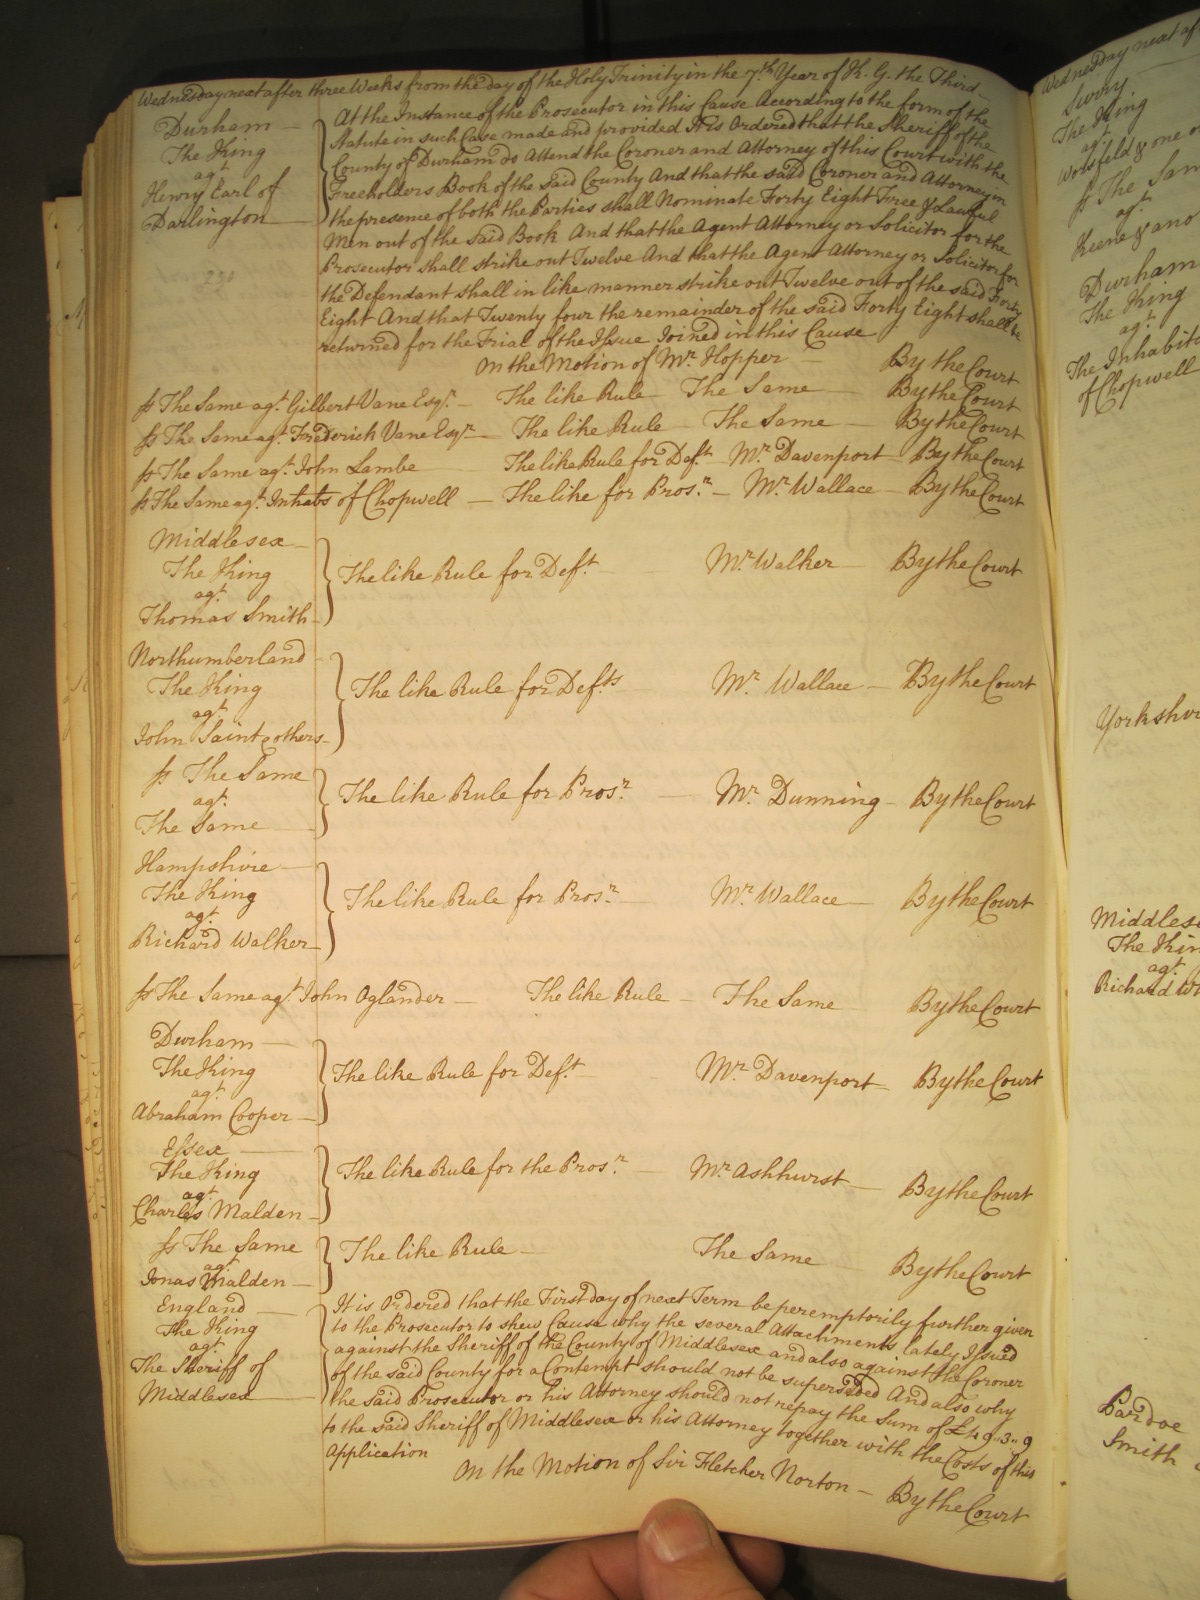 Wednesday next after three Weeks from the day of the Holy Trinity in the 7th Year of K. G. the Third
Durham
The King
agt
Henry Earl of
Darlington
At the Instance of the Prosecutor in this Cause According to the form of the
Statute in such Case made and provided It is Ordered that the Sheriff of the
County of Durham do Attend the Coroner and Attorney of this Court with the
Freeholders Book of the said County And that the said Coroner and Attorney in
the presence of both the Parties shall Nominate Forty Eight Free & Lawful
Men out of the said Book And that the Agent Attorney or Solicitor for the
Prosecutor shall strike out Twelve And that the Agent Attorney or Solicitor for
the Defendant shall in like manner strike out Twelve out of the said Forty
Eight And that Twenty four the remainder of the said Forty Eight shall be
returned for the Trial of the Issue Joined in this Cause
On the Motion of Mr. Hopper By the Court
Ss The Same agt. Gilbert Vane Esqr. The like Rule The Same By the Court
Ss The Same agt. Frederick Vane Esqr The like Rule The Same By the Court
Ss The Same agt. John Lambe The like Rule for Deft. Mr. Davenport By the Court
Ss The Same agt. Inhabts of Chopwell The like for Prosr. Mr. Wallace By the Court
Middlesex
The King
agt
Thomas Smith
The like Rule for Deft. Mr. Walker By the Court
Northumberland
The King
agt
John Saint & others
The like Rule for Defts Mr. Wallace By the Court
Ss The Same
agt.
The Same
The like Rule for Prosr. Mr. Dunning By the Court
Hampshire
The King
agt.
Richard Walker
The like Rule for Prosr. Mr. Wallace By the Court
Ss The Same agt. John Oglander The like Rule The Same By the Court
Durham
The King
agt.
Abraham Cooper
The like Rule for Deft. Mr. Davenport By the Court
Essex
The King
agt.
Charles Malden
The like Rule for the Prosr. Mr. Ashhurst By the Court
Ss The Same
agt
Jonas Malden
The like Rule The Same By the Court
England
The King
agt.
The Sheriff of
Middlesex
It is Ordered that the First day of next Term be peremptorily further given
to the Prosecutor to shew Cause why the several Attachments lately Issued
against the Sheriff of the County of Middlesex and also against the Coroner
of the said County for a Contempt should not be superseded And also why
the said Prosecutor or his Attorney should not repay the Sum of £49..3..9
to the said Sheriff of Middlesex or his Attorney together with the Costs of this
Application
On the Motion of Sir Fletcher Norton By the Court
Wednesday next
Surry
The King
agt.
Ss The
agt.
Keene & ano
Durham
The King
agt.
The
of Chopwell
agt.
Richard
Pardoe
Smith